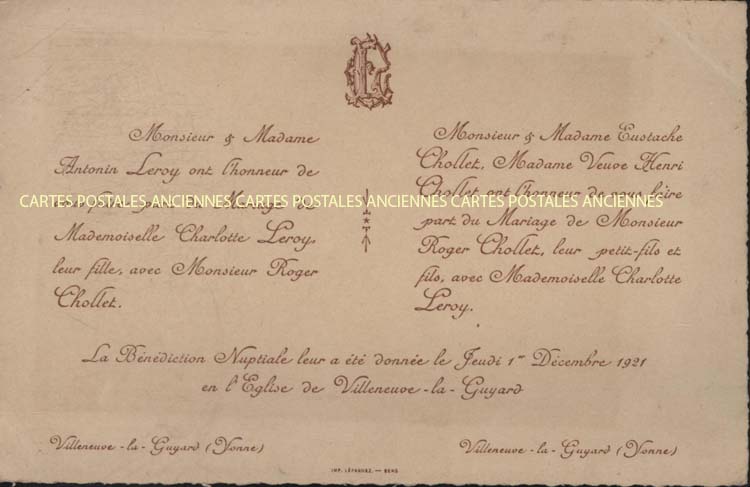 Monsieur & Madame
Antonin Leroy ont l'honneur de
vous faire part du Mariage de
Mademoiselle Charlotte Leroy,
leur fille, avec Monsieur Roger
Chollet.
Monsieur & Madame Eustache
Chollet, Madame Veuve Henri
Chollet ont l'honneur de vous faire
part du Mariage de Monsieur
Roger Chollet, leur petit-fils et
fils, avec Mademoiselle Charlotte
Leroy.
CARTES POSTALES ANCIENNES CARTES POSTALES ANCIENNES CARTES POSTALES ANCIENNES
La Bénédiction Nuptiale leur a été donnée le Jeudi 1er Décembre 1921
en l'Eglise de Villeneuve-la-Guyard
Villeneuve-la-Guyard (Yonne)
Villeneuve-la-Guyard (Yonne)
IMP. — SENS